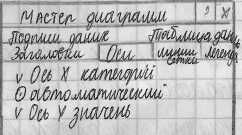 Мастер диаграмм ? X
Подписи даних Таблица данн
Заголовки Оси линии сетки Легенда
v Ось X категорий
⊙ автоматический
v Ось Y значень